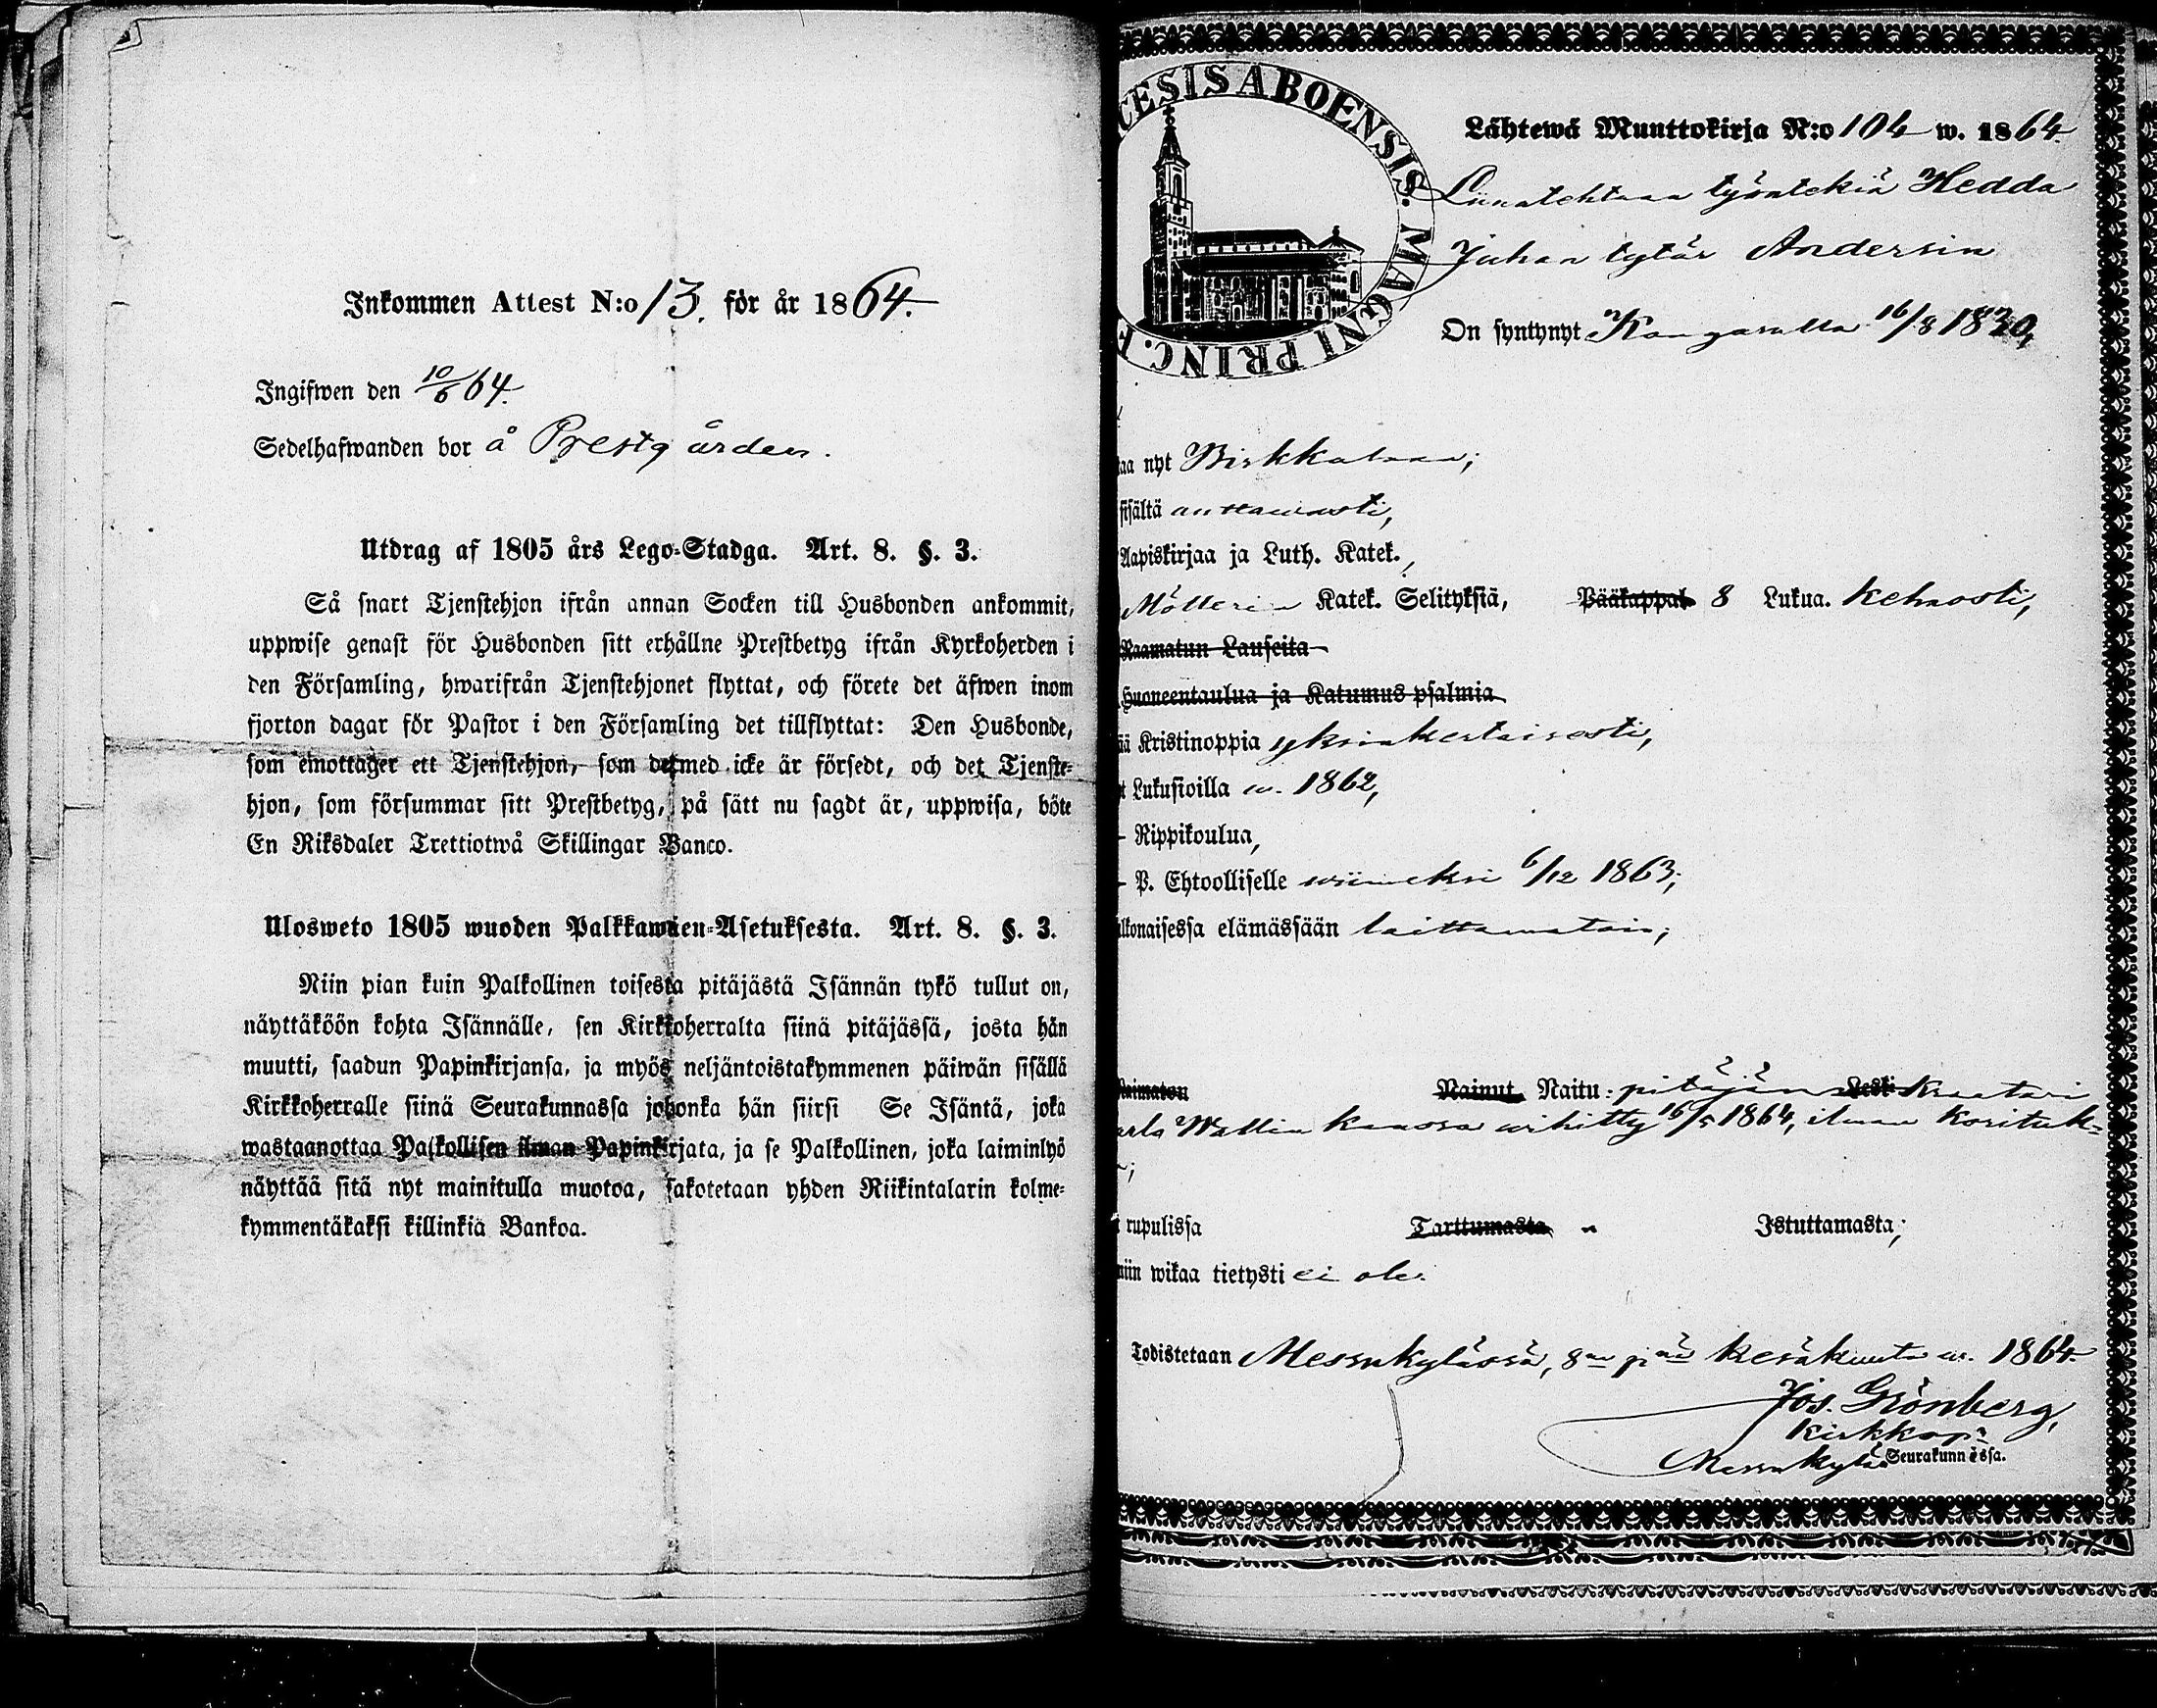 Inkommen Attest N:o 13. för år 1864.
Ingifwen den 10/6 64.
Sedelhafwanden bor å Prestgården.
Utdrag af 1805 års Lego-Stadga. Art. 8. §. 3.
Så snart Tjenstehjon ifrån annan Socken till Husbonden ankommit,
uppwise genast för Husbonden sitt erhållne Prestbetyg ifrån Kyrkoherden i
den Församling, hwarifrån Tjenstehjonet flyttat, och förete det äfwen inom
fjorton dagar för Pastor i den Församling det tillflyttat: Den Husbonde,
som emottager ett Tjenstehjon, som dermed icke är försedt, och det Tjenste-
hjon, som försummar sitt Prestbetyg, på sätt nu sagdt är, uppwisa, böte
En Riksdaler Trettiotwå Skillingar Banco.
Ulosweto 1805 wuoden Palkkawäen-Asetuksesta. Art. 8. §. 3.
Niin pian kuin Palkollinen toisesta pitäjästä Isännän tykö tullut on,
näyttäköön kohta Isännälle, sen Kirkkoherralta siinä pitäjässä, josta hän
muutti, saadun Papinkirjansa, ja myös neljäntoistakymmenen päiwän sisällä
Kirkkoherralle siinä Seurakunnassa johonka hän siirsi Se Isäntä, joka
wastaanottaa Palkollisen ilman Papinkirjata, ja se Palkollinen, joka laiminlyö
näyttää sitä nyt mainitulla muotoa, sakotetaan yhden Riikintalarin kolme-
kymmentäkaksi killinkiä Bankoa.
CESIS ABOENSIS. MAGNI PRINC. F
Lähtewä Muuttokirja N:o 104 w. 1864.
Liinatehtaan työntekiä Hedda
Juhan tytär Andersin
On syntynyt Kangasalla 16/8 1830,
taa nyt Birkkalaan;
sisältä auttawasti,
Aapiskirjaa ja Luth. Katek.,
Möllerin Katek. Selityksiä, Pääkappal. 8 Lukua. kehnosti,
Raamatun Lauseita
Huoneentaulua ja Katumus psalmia
ää Kristinoppia yksinkertaisesti,
t Lukusioilla w. 1862,
- Rippikoulua,
- P. Ehtoolliselle wiimeksi 6/12 1863;
lkonaisessa elämässään laittamatoin;
Naimaton Nainut Naitu: pitäjän Leski Kraatari
arlo Wallin kanssa wihitty 16/5 1864, ilman kosituk-
rupulissa Tarttumasta Istuttamasta;
niin wikaa tietysti ei ole.
Todistetaan Messukylässä, 8na pnä kesäkuuta w. 1864.
Jos. Grönberg,
Kirkkop:
Messukylän Seurakunnassa.